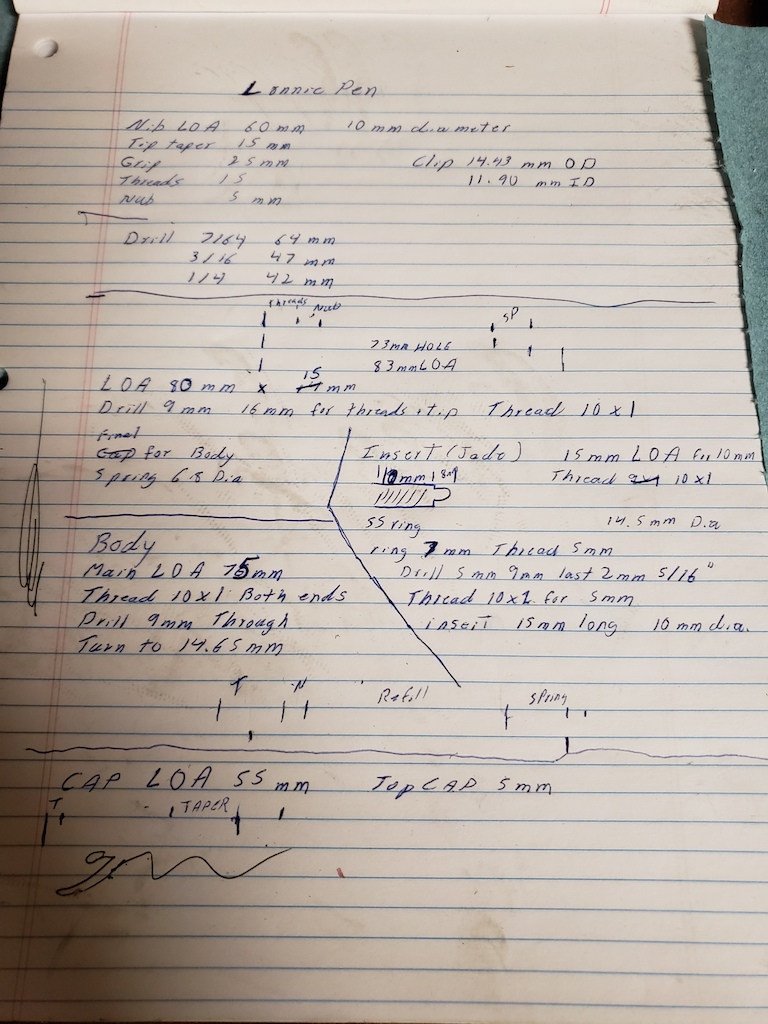 Lonnie Pen
Nib LOA 60 mm 10 mm diameter
Tip taper 15 mm
Grip 25 mm Clip 14.43 mm OD
Threads 15 11.90 mm ID
Nub 5 mm
Drill 7/64 64 mm
3/16 47 mm
1/4 42 mm
Threads Nub
SP
73mm HOLE
83mm LOA
LOA 80 mm x 15 mm
Drill 9 mm 16 mm for threads + tip Thread 10 x 1
Final
Cap for Body
Spring 6.8 Dia
Insert (Jade) 15 mm LOA for 10mm
10mm Thread 10 x 1
SS ring 14.5 mm Dia
ring 7 mm Thread 5mm
Drill 5mm 9mm last 2mm 5/16"
Thread 10x1 for 5mm
insert 15mm long 10 mm dia.
Body
Main LOA 75mm
Thread 10x1 Both ends
Drill 9mm Through
Turn to 14.65mm
T N Refill Spring
CAP LOA 55 mm Top CAP 5mm
T TAPER